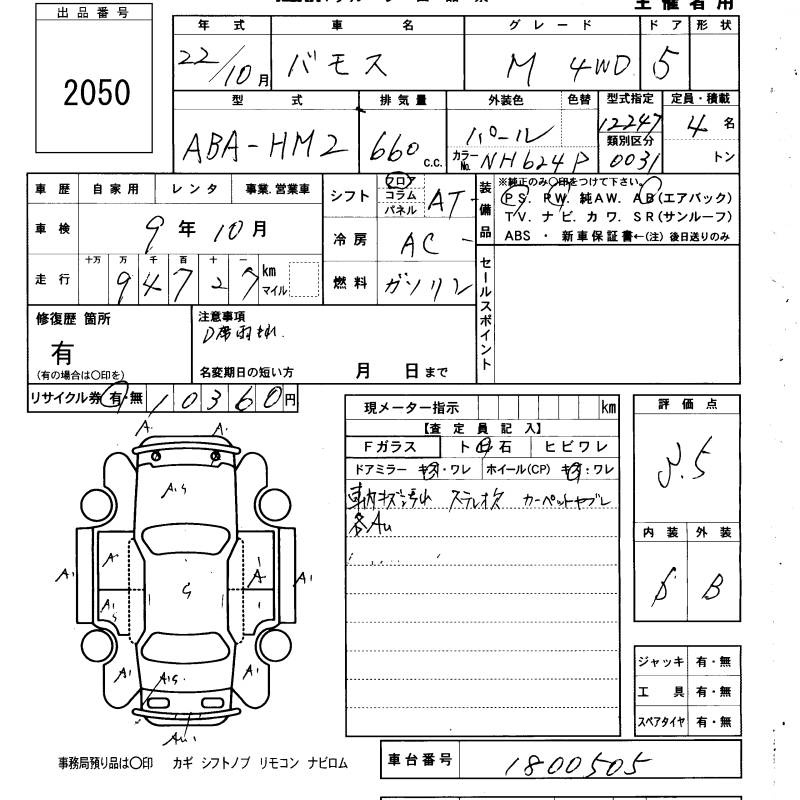 主催者用
出品番号
2050
年式 車名 グレード ドア 形状
22/10月 バモス M 4WD 5
型式 排気量 外装色 色替 型式指定 定員・積載
ABA-HM2 660 c.c. パール 12247 4名
カラーNo. NH624P 類別区分 0031 トン
車歴 自家用 レンタ 事業.営業車
車検 9年10月
走行 十万 万 千 百 十 一
94727 km マイル
シフト フロア コラム パネル AT
冷房 AC
燃料 ガソリン
装備品
※純正のみ〇印をつけて下さい。
PS. PW. 純AW. AB(エアバック)
TV. ナビ. カワ. SR(サンルーフ)
ABS ・ 新車保証書←(注) 後日送りのみ
セールスポイント
修復歴 箇所
有
(有の場合は〇印を)
注意事項
D席
名変期日の短い方 月 日まで
リサイクル券 有・無 10360円
現メーター指示 km
【査定員記入】
Fガラス ト 石 ヒビワレ
ドアミラー キズ・ワレ ホイール(CP) キズ・ワレ
車内キズ汚れ ステレオ欠 カーペットヤブレ
各AU
評価点
3.5
内装 外装
B
ジャッキ 有・無
工具 有・無
スペアタイヤ 有・無
A1 A1
A1S
A1 A1 A1 A1
G
A1S
A1 A1S A1
AU1
事務局預り品は〇印 カギ シフトノブ リモコン ナビロム
車台番号 1800505